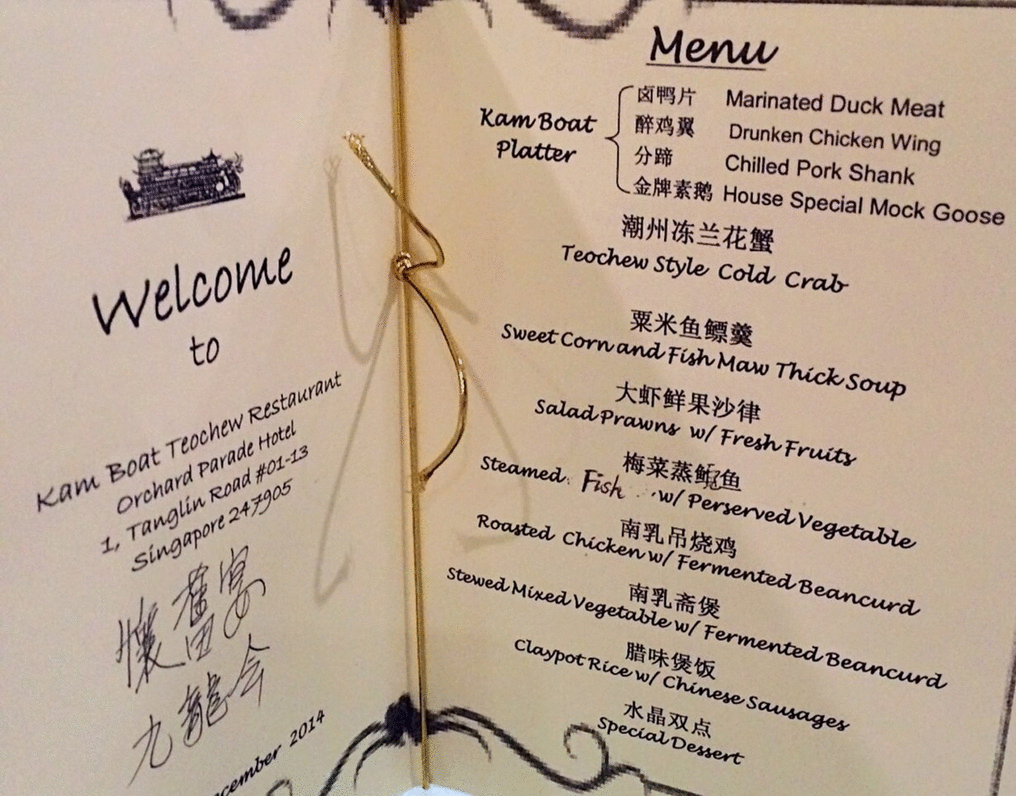 Welcome
to
Kam Boat Teochew Restaurant
Orchard Parade Hotel
1, Tanglin Road #01-13
Singapore 247905
懷舊宴
九龍会
cember 2014
Menu
Kam Boat
Platter
卤鸭片 Marinated Duck Meat
醉鸡翼 Drunken Chicken Wing
分蹄 Chilled Pork Shank
金牌素鹅 House Special Mock Goose
潮州冻兰花蟹
Teochew Style Cold Crab
粟米鱼鳔羹
Sweet Corn and Fish Maw Thick Soup
大虾鲜果沙律
Salad Prawns w/ Fresh Fruits
梅菜蒸鱼
Steamed Fish w/ Perserved Vegetable
南乳吊烧鸡
Roasted Chicken w/ Fermented Beancurd
南乳斋煲
Stewed Mixed Vegetable w/ Fermented Beancurd
腊味煲饭
Claypot Rice w/ Chinese Sausages
水晶双点
Special Dessert